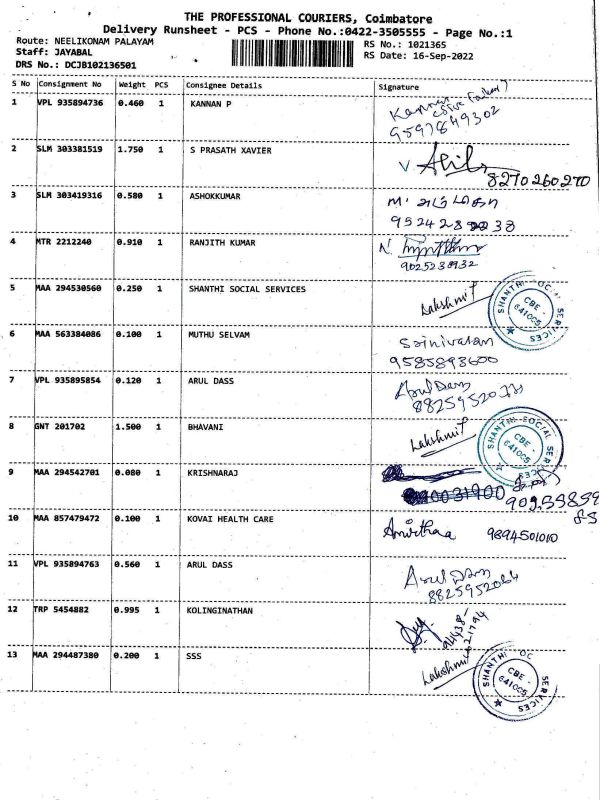 THE PROFESSIONAL COURIERS, Coimbatore
Delivery Runsheet - PCS - Phone No.:0422-3505555 - Page No.:1
Route: NEELIKONAM PALAYAM
RS No.: 1021365
Staff: JAYABAL
RS Date: 16-Sep-2022
DRS No.: DCJB102136501
S No Consignment No Weight PCS Consignee Details Signature
1 VPL 935894736 0.460 1 KANNAN P Kannan
9597849302
2 SLM 303381519 1.750 1 S PRASATH XAVIER
8270260270
3 SLM 303419316 0.580 1 ASHOKKUMAR
4 MTR 2212240 0.910 1 RANJITH KUMAR
9025238932
5 MAA 294530560 0.250 1 SHANTHI SOCIAL SERVICES Lakshmi
SHANTHI SOCIAL SERVICES
CBE -
641005
6 MAA 563384086 0.100 1 MUTHU SELVAM Srinivasan
9585893600
7 VPL 935895854 0.120 1 ARUL DASS Arul Dass
8 GNT 201702 1.500 1 BHAVANI Lakshmi
SHANTHI SOCIAL SERVICES
CBE -
641005
9 MAA 294542701 0.080 1 KRISHNARAJ
10 MAA 857479472 0.100 1 KOVAI HEALTH CARE Amirthaa 9894501010
11 VPL 935894763 0.560 1 ARUL DASS Arul Dass
8825952064
12 TRP 5454882 0.995 1 KOLINGINATHAN
13 MAA 294487380 0.200 1 SSS Lakshmi
SHANTHI SOC SERVICES
CBE -
641005